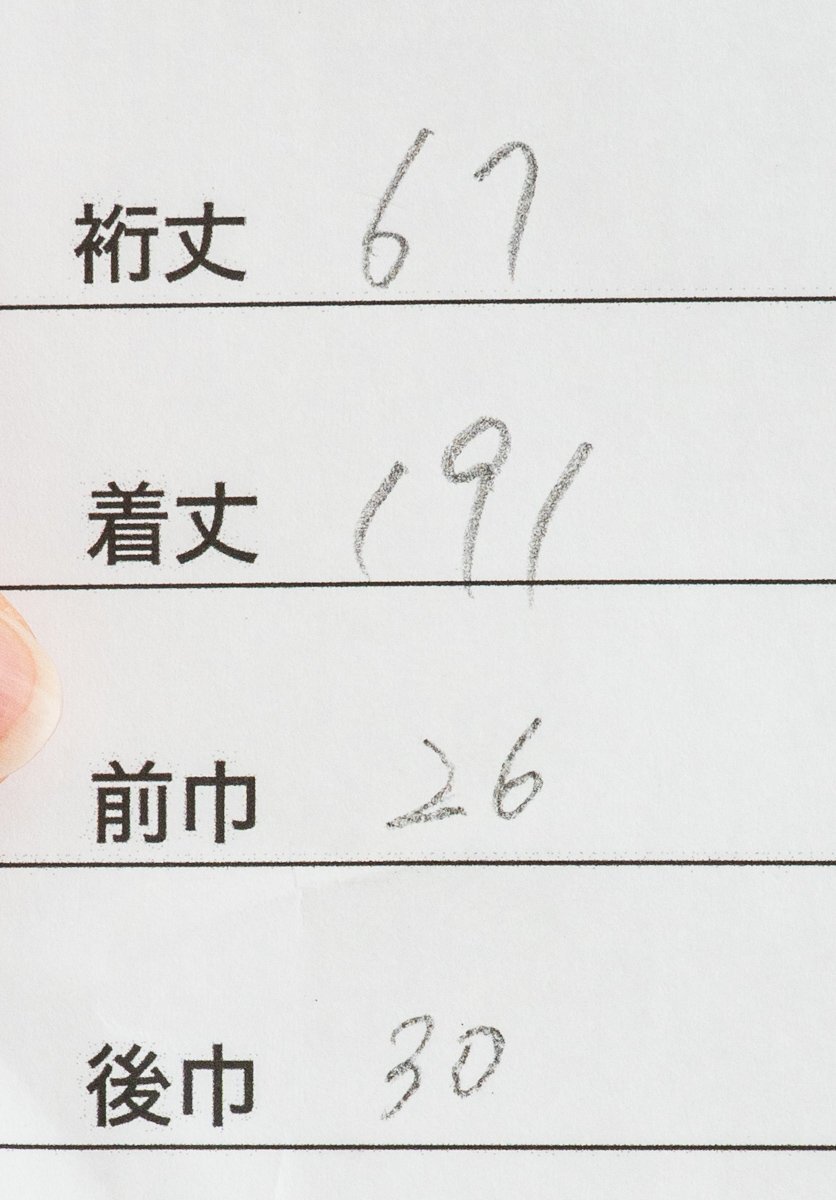 裄丈 67
着丈 191
前巾 26
後巾 30